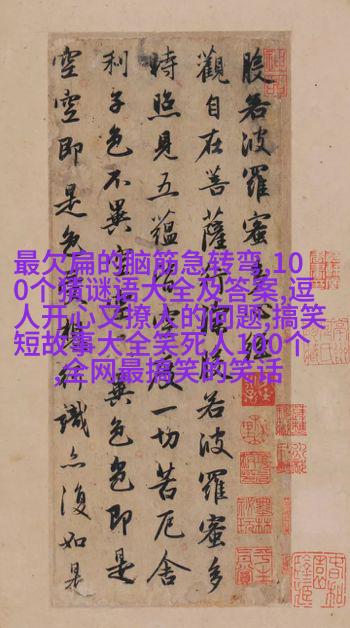 般若波羅蜜多心經
觀自在菩薩行深般若波羅蜜多
時照見五蘊皆空度一切苦厄舍
利子色不異空空不異色色即是
空空即是色受想行識亦復如是
最欠扁的脑筋急转弯,10
0个猜谜语大全及答案,逗
人开心又撩人的问题,搞笑
短故事大全笑死人100个
,全网最搞笑的笑话